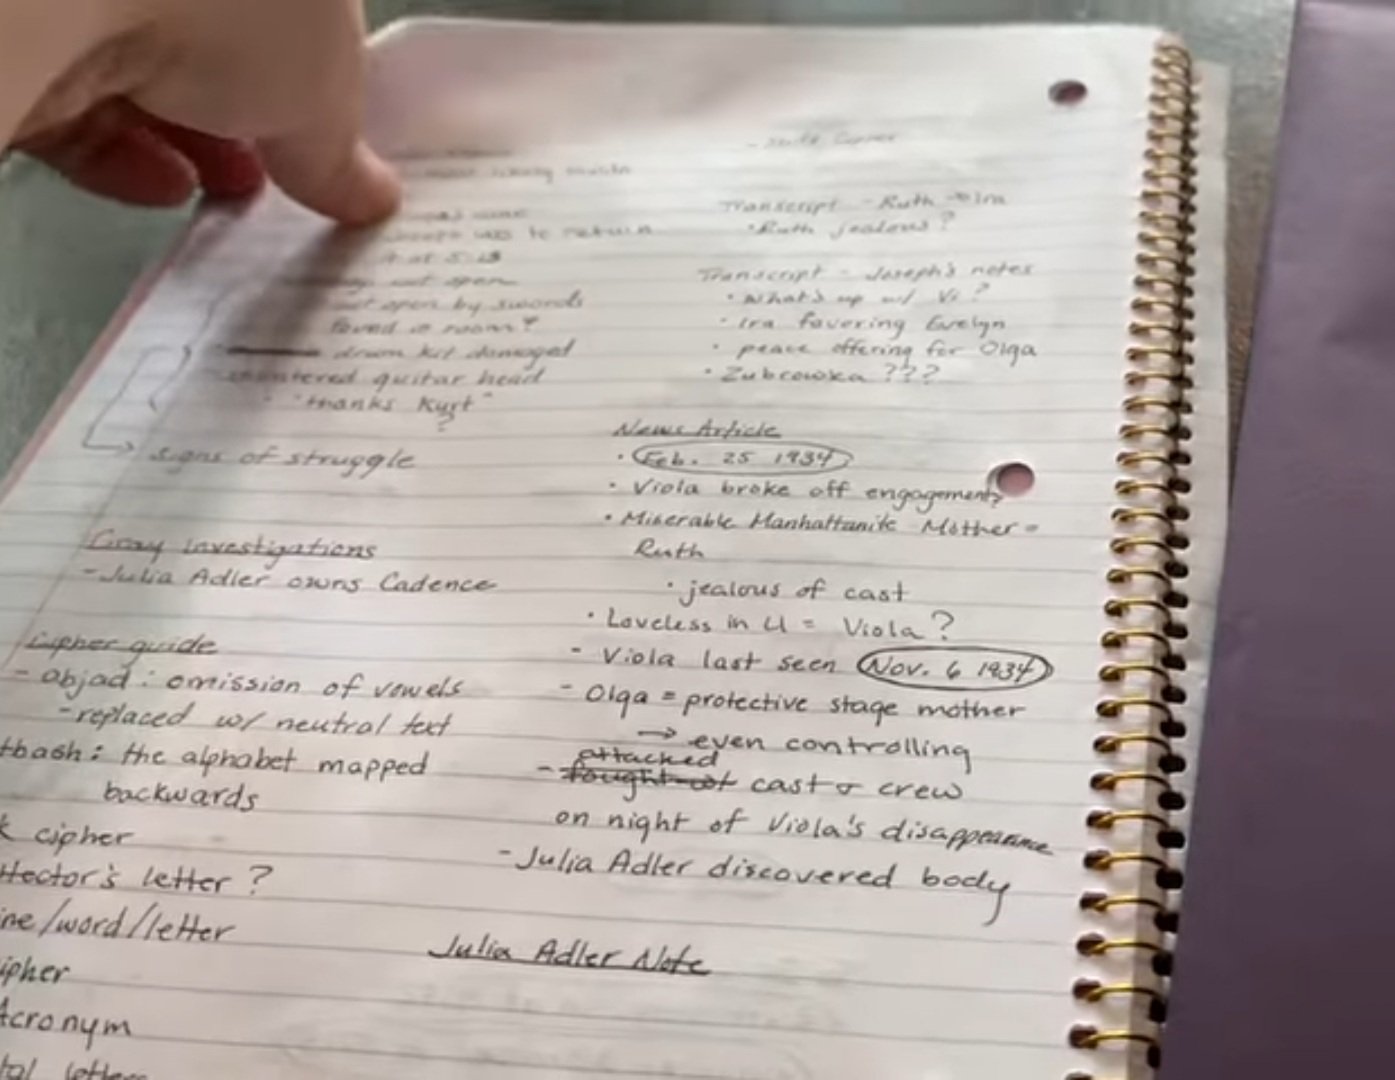 to return
open
open by swords
found in room?
drum kit damaged
guitar head
"thanks Kurt"
?
signs of struggle
Gray Investigations
- Julia Adler owns Cadence
Cipher guide
- abjad: omission of vowels
- replaced w/ neutral text
tbash: the alphabet mapped
backwards
k cipher
Hector's letter?
ine/word/letter
ipher
Acronym
Transcript - Ruth → Ira
• Ruth jealous?
Transcript - Joseph's notes
• What's up w/ Vi?
• Ira favoring Evelyn
• peace offering for Olga
• Zubrowka ???
News Article
• Feb. 25 1934
• Viola broke off engagement?
• Miserable Manhattanite Mother =
Ruth
• jealous of cast
• Loveless in LI = Viola?
- Viola last seen Nov. 6 1934
- Olga = protective stage mother
→ even controlling
attacked
- fought w/ cast & crew
on night of Viola's disappearance
- Julia Adler discovered body
Julia Adler Note